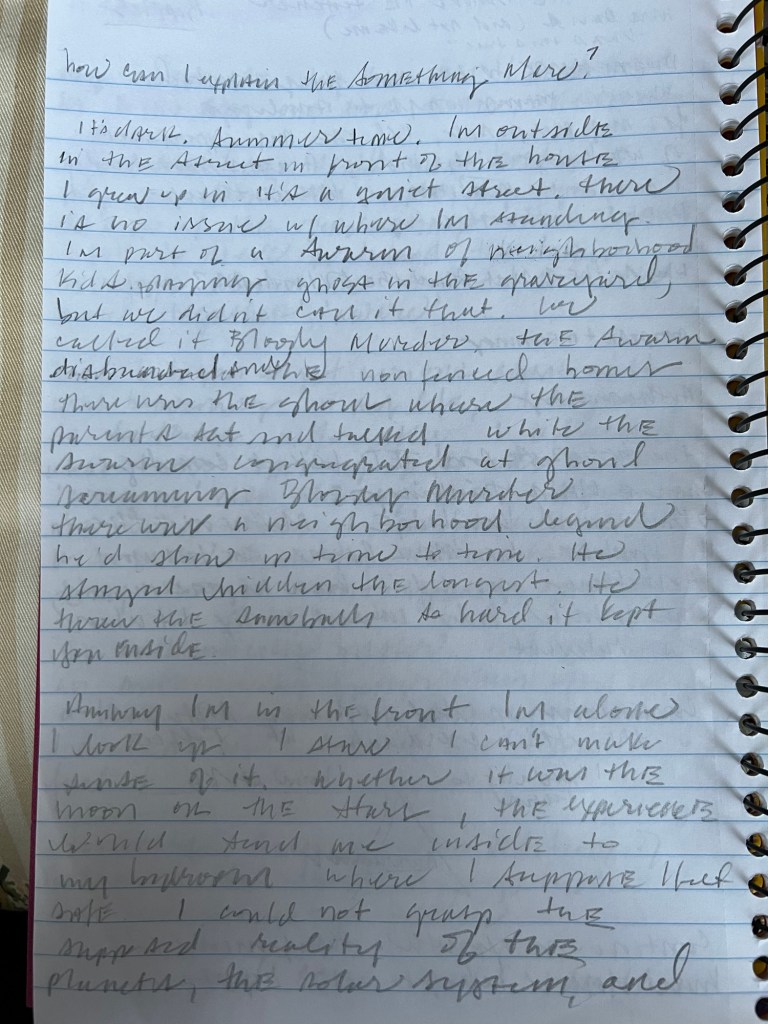 how can I explain the something more?
It's dark. Summer time. Im outside
in the street in front of the house
I grew up in it's a quiet street. there
is no issue w/ where Im standing.
Im part of a swarm of neighborhood
kids. playing ghost in the graveyard,
but we didn't call it that. we
called it Bloody Murder. the swarm
disbanded the non fenced homes
there was the ghoul where the
parents sat and talked while the
swarm congregated at ghoul
screaming Bloody Murder
there was a neighborhood legend
he'd show up time to time. He
stayed hidden the longest. He
threw the snowballs so hard it kept
you inside.
Anyway Im in the front Im alone
I look up I stare I can't make
sense of it. whether it was the
moon or the stars, the experience
would send me inside to
my bedroom where I suppose I felt
safe. I could not grasp the
supposed reality of the
planets, the solar system, and